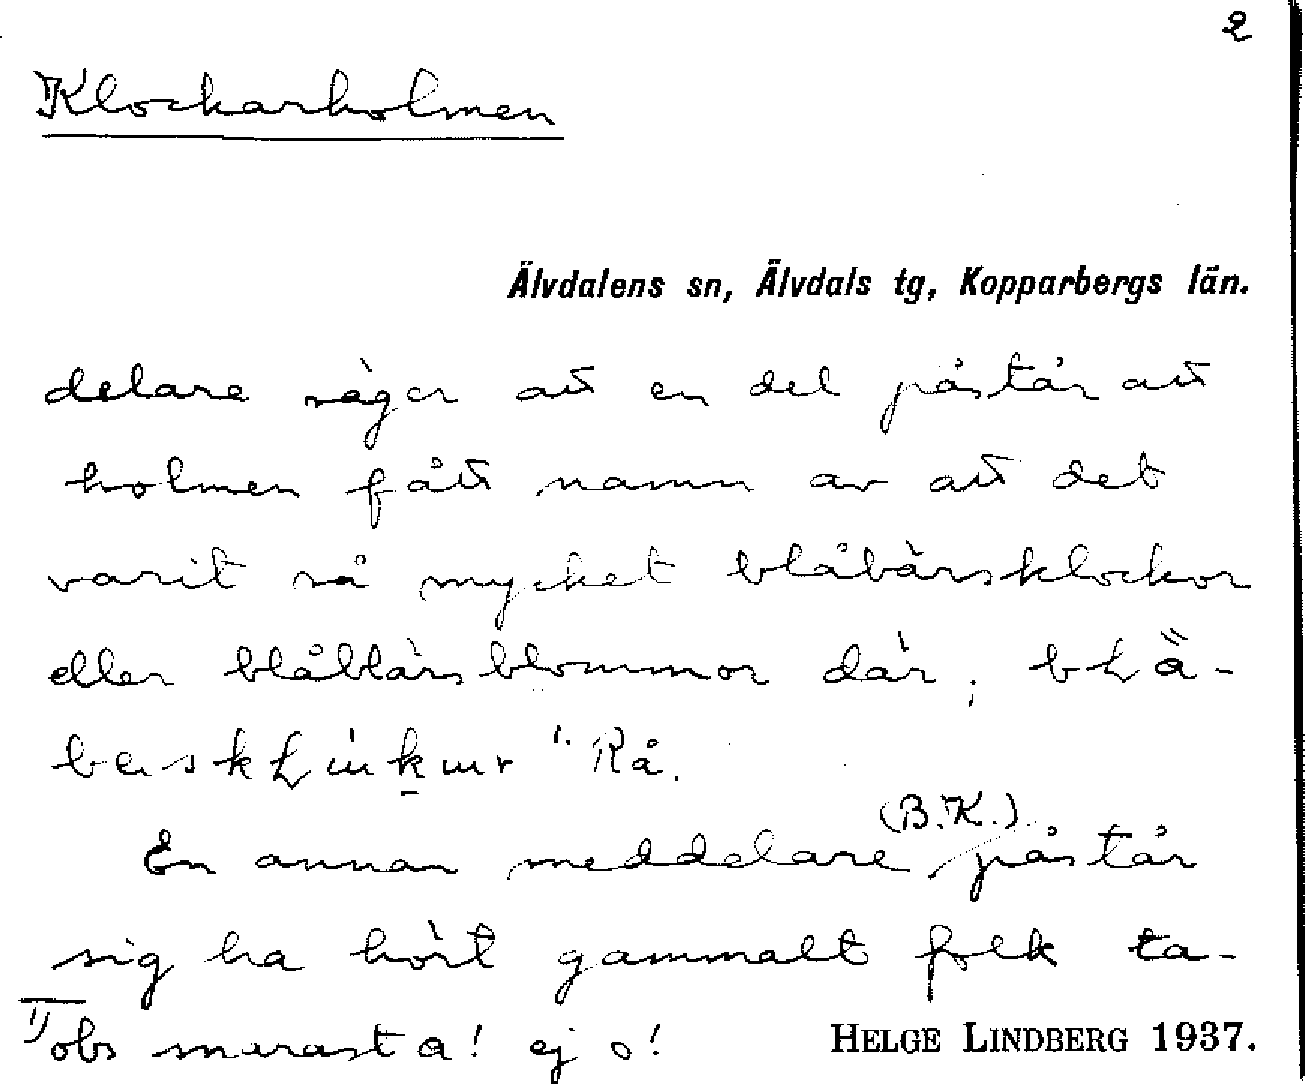 2
Klockarholmen
Älvdalens sn, Älvdals tg, Kopparbergs län.
delare säger att en del påstår att
holmen fått namn av att det
varit så mycket blåbärsklockor
eller blåblärsblommor där;
Rå.
(B.K.)
En annan meddelare påstår
sig ha hört gammalt folk ta-
1) obs a! ej o!
HELGE LINDBERG 1937.